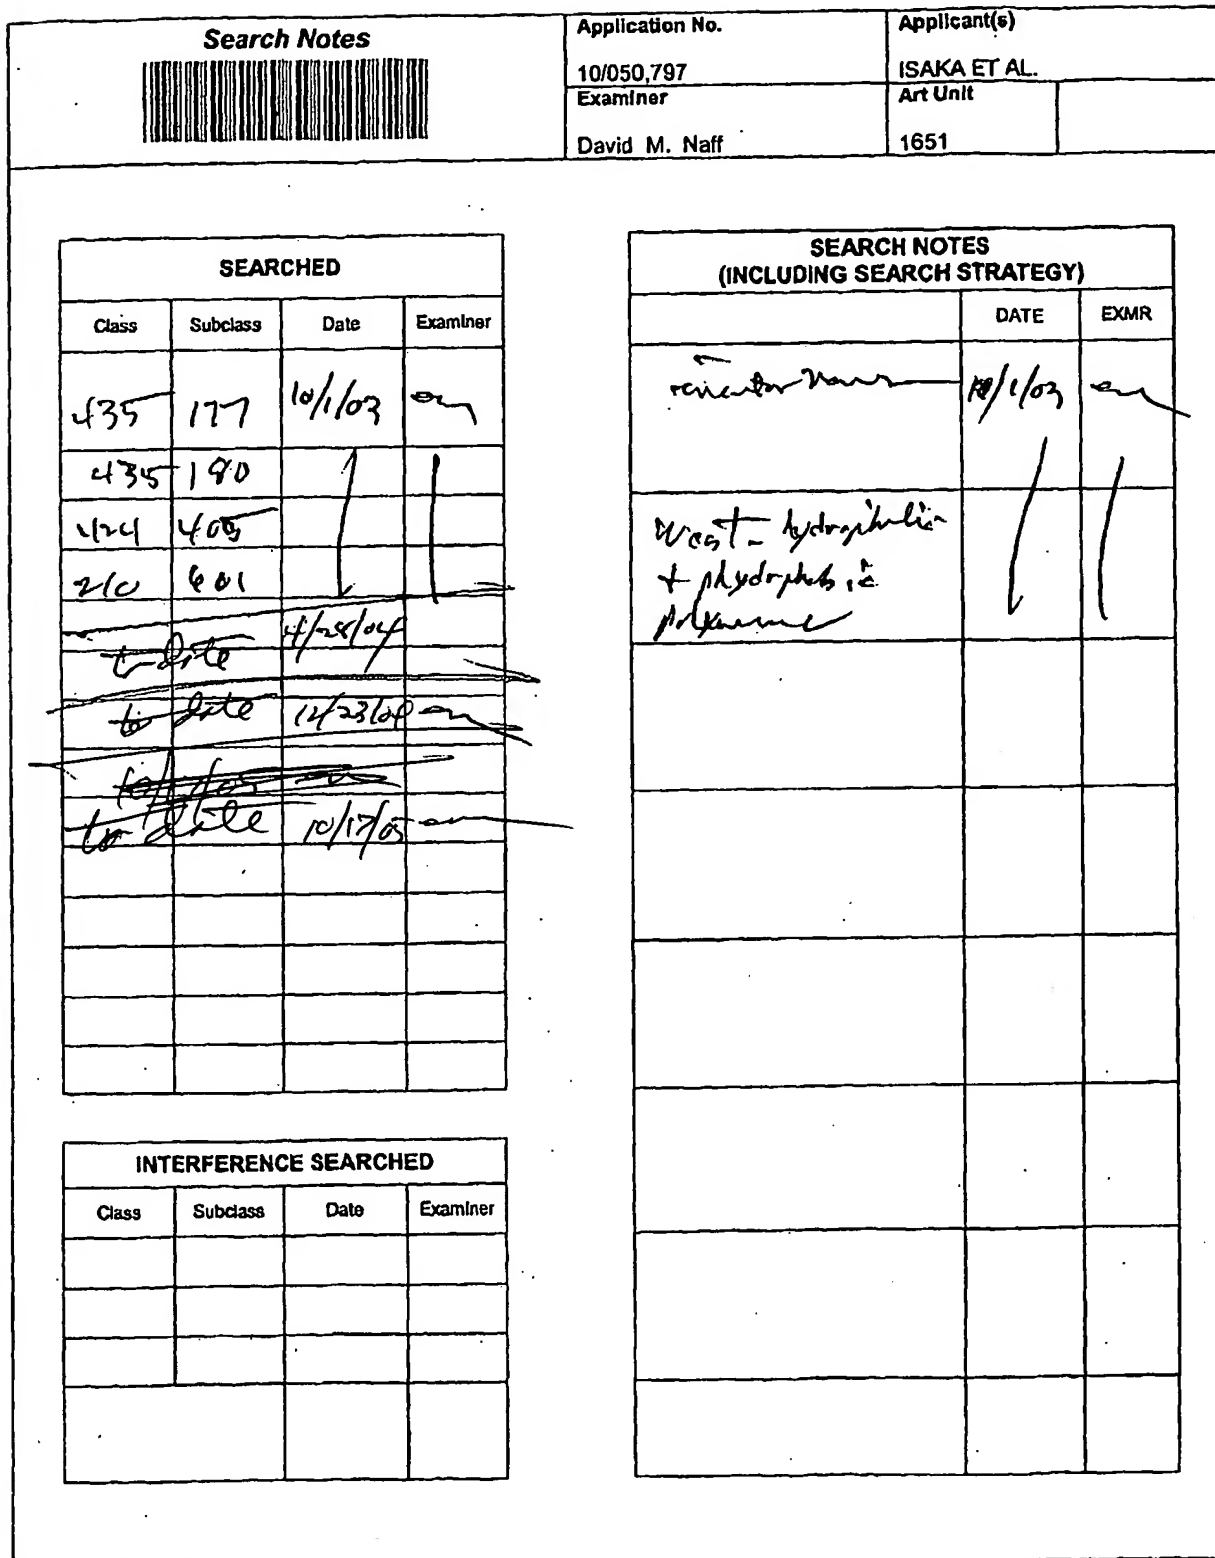 Search Notes
Application No.
10/050,797
Applicant(s)
ISAKA ET AL.
Examiner
David M. Naff
Art Unit
1651
SEARCHED
Class Subclass Date Examiner
435 177 10/1/03
435 180
424 405
210 601
to date 4/28/04
to date 12/23/04
to date 10/17/05
INTERFERENCE SEARCHED
Class Subclass Date Examiner
SEARCH NOTES
(INCLUDING SEARCH STRATEGY)
DATE EXMR
10/1/03
West - hydrophilic
+ phydrophobic